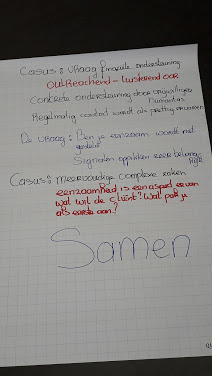 Casus: vraag financiele ondersteuning
Outreachend - Luisterend oor
Concrete ondersteuning door vrijwilliger
Humanitas
Regelmatig contact wordt als prettig ervaren
De vraag: Ben je eenzaam wordt niet
gesteld
Signalen oppikken zeer belang-
rijk
Casus: Meervoudige complexe zaken
eenzaamheid is een aspect ervan
wat wil de cliënt? Wat pak je
als eerste aan?
Samen